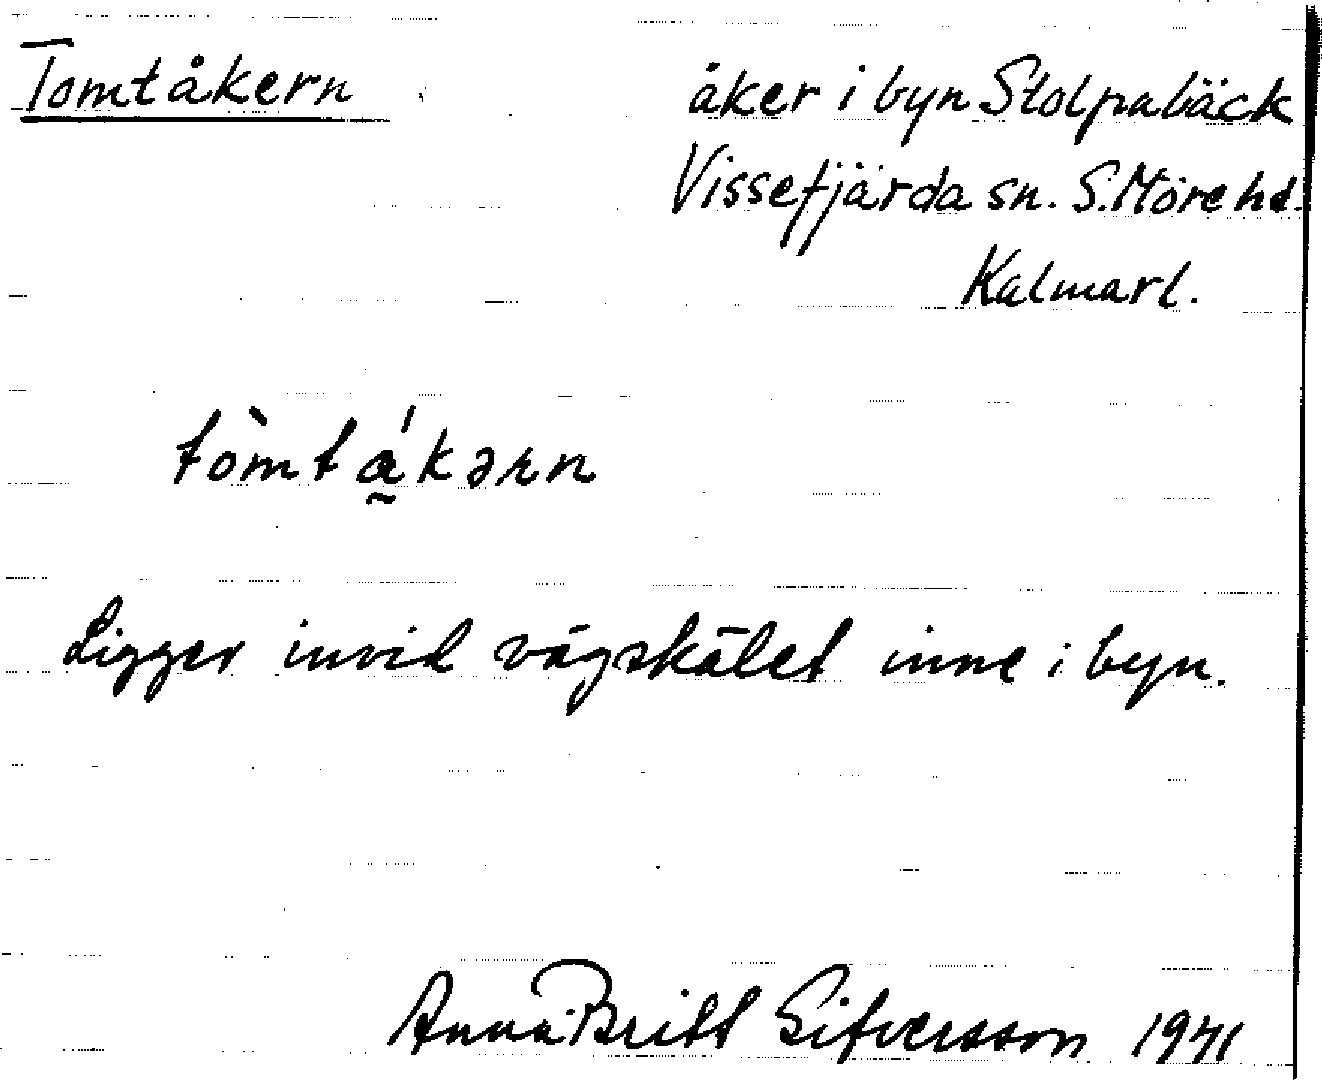 Tomtåkern
åker i byn Stolpabäck
Vissefjärda sn. S. Möre hd.
Kalmarl.
tòmtá̰kərn
Ligger invid vägskälet inne i byn.
Anna-Britt Sifversson 1941